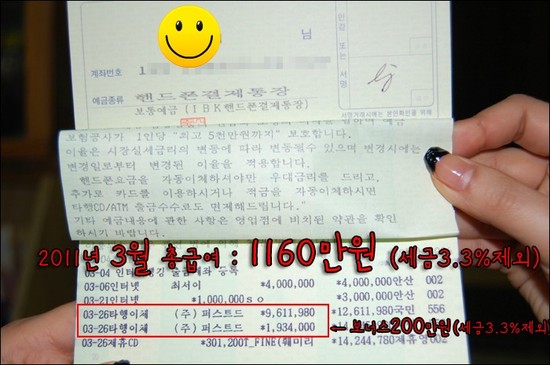 님
인감 또는 서명
계좌번호 1
예금종류 핸드폰결제통장
보통예금(IBK핸드폰결제통장)
보험공사가 1인당 "최고 5천만원까지" 보호합니다.
이율은 시장실세금리의 변동에 따라 변동될수 있으며 변경시에는
변경일로부터 변경된 이율을 적용합니다.
핸드폰요금을 자동이체하셔야만 우대금리를 드리고,
추가로 카드를 이용하시거나 적금을 자동이체하시면
타행CD/ATM 출금수수료도 면제해드립니다."
기타 예금내용에 관한 사항은 영업점에 비치된 약관을 확인
하시기 바랍니다.
2011년 3월 총급여 : 1160만원 (세금3.3%제외)
03-04 인터
03-26인터넷 최서이 *4,000,000 *4,000,000안산 002
03-21인터넷 *1,000,000so *3,000,000안산 002
03-26타행이체 (주) 퍼스트드 *9,611,980 *12,611,980국민 556
03-26타행이체 (주) 퍼스트드 *1,934,000 ← 보너스200만원(세금3.3%제외
03-26제휴CD *301,200T_FINE(훼미리 *14,244,780제휴영 002